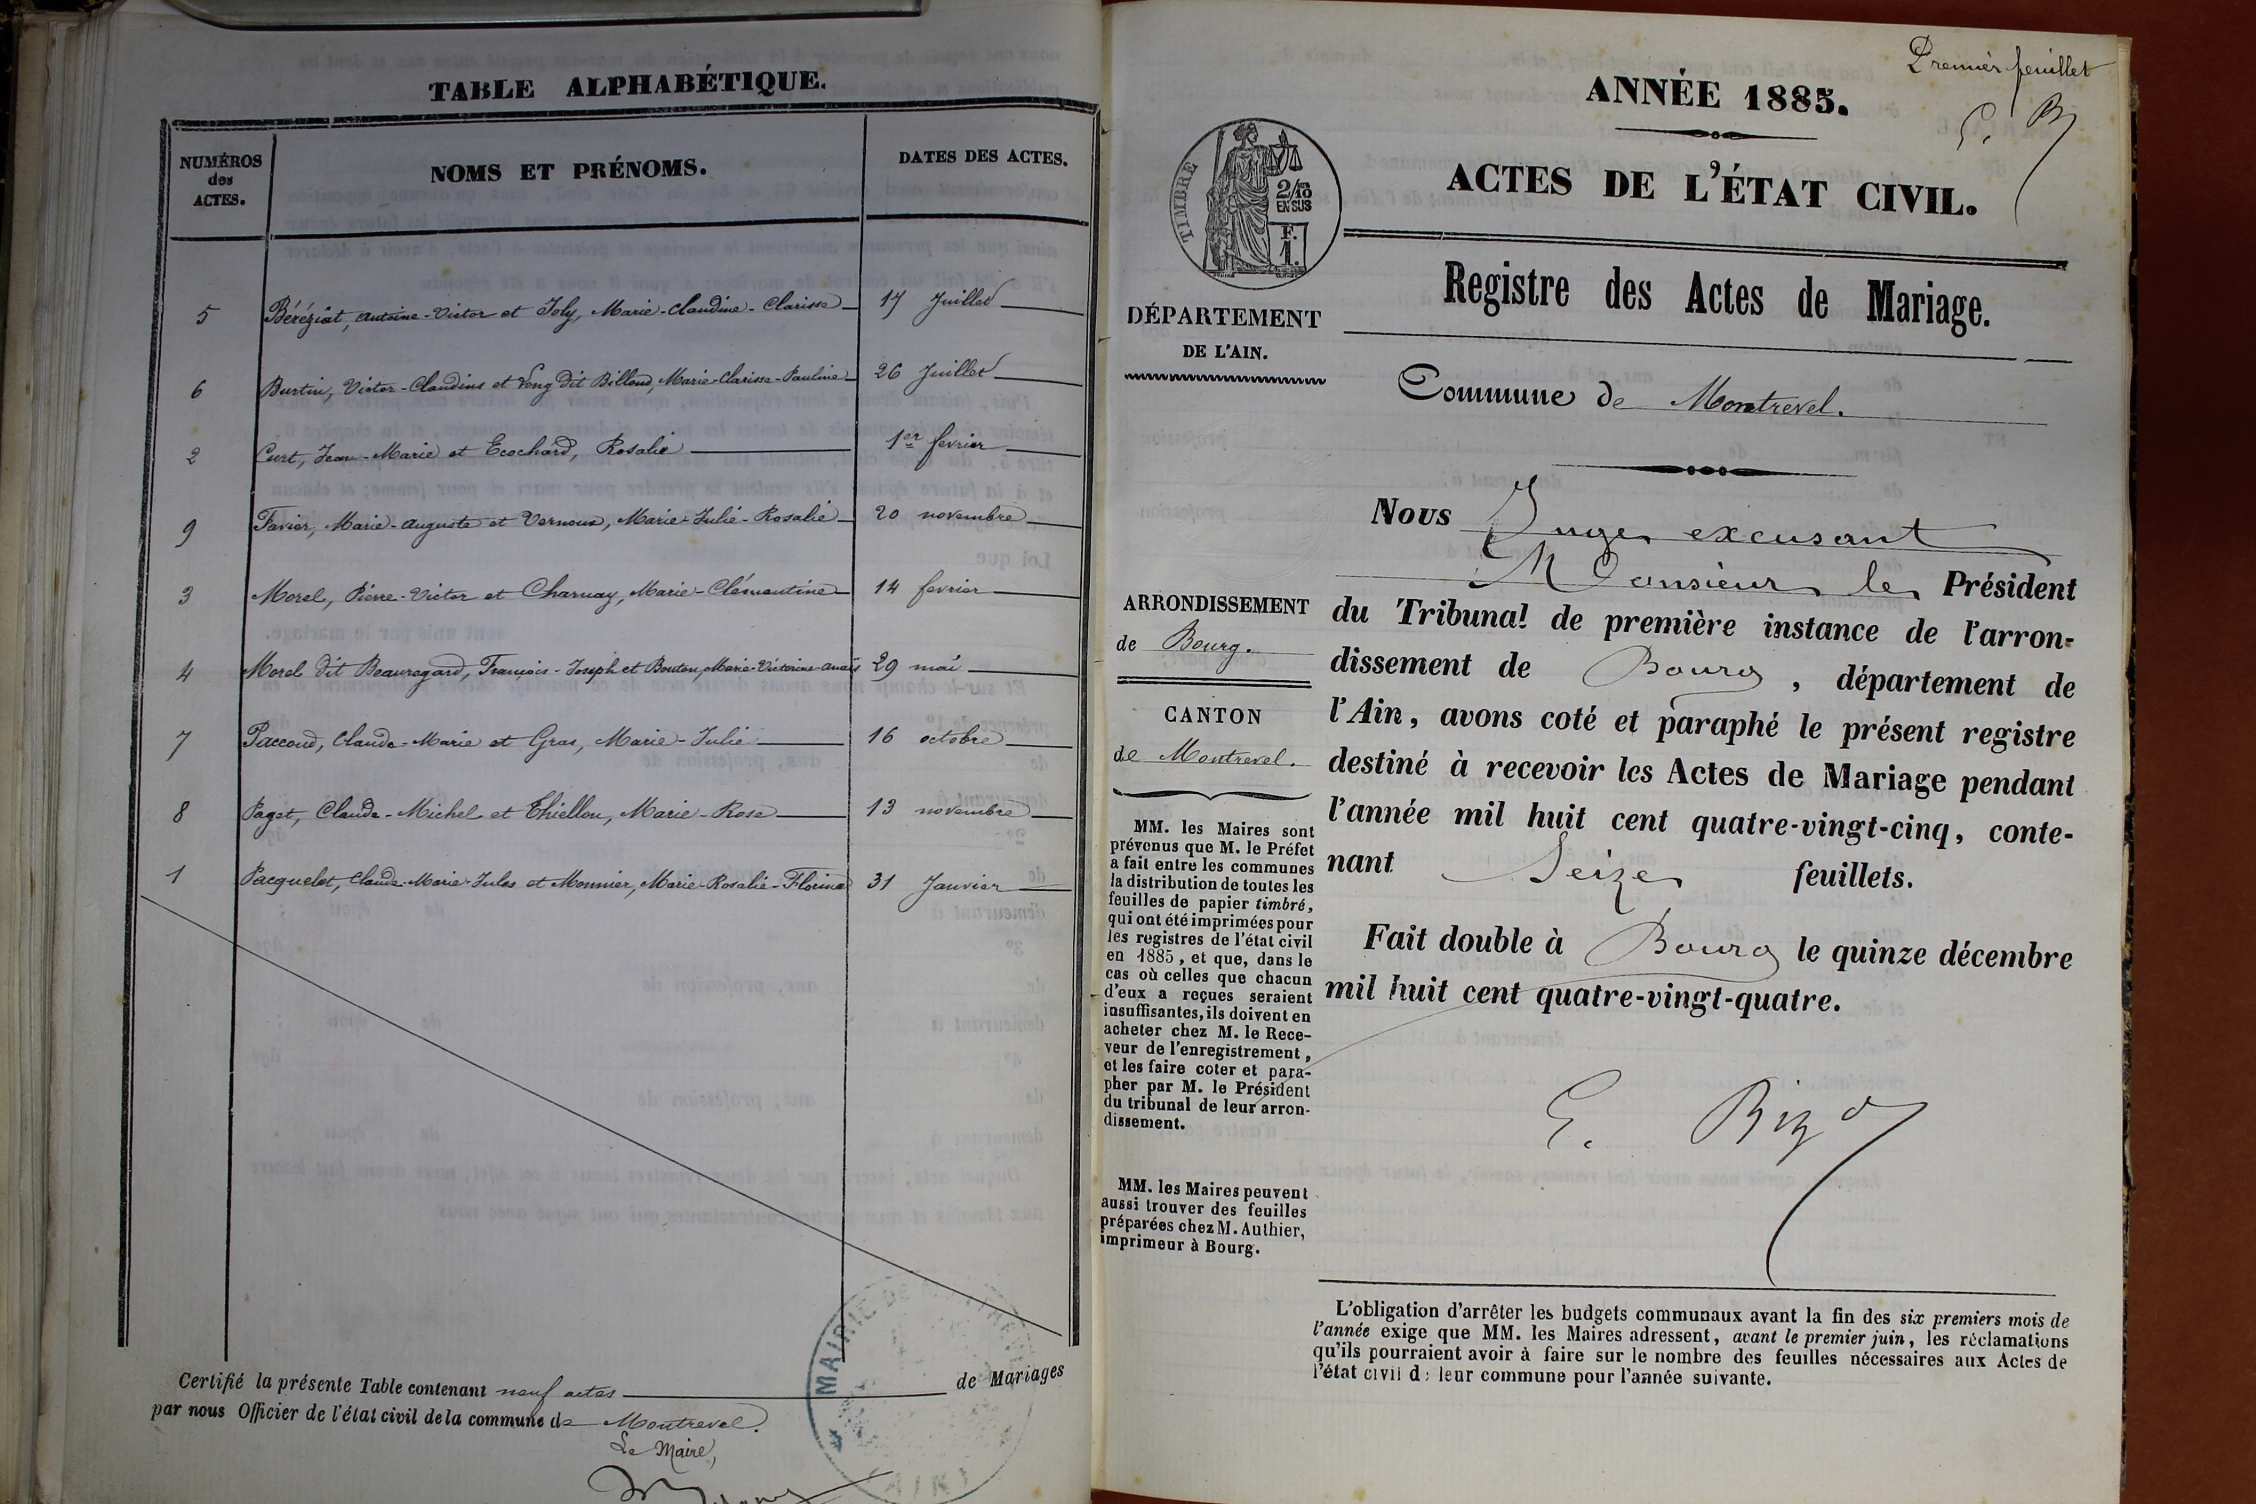 TABLE ALPHABÉTIQUE.
NUMÉROS
des
ACTES.
NOMS ET PRÉNOMS.
DATES DES ACTES.
5 Béréziat, Antoine-Victor et Joly, Marie-Claudine-Clarisse 17 Juillet
6 Burtin, Victor-Claudius et Veng dit Billoud, Marie-Clarisse-Pauline 26 Juillet
2 Curt, Jean-Marie et Ecochard, Rosalie 1er fevrier
9 Favier, Marie-Auguste et Vernoux, Marie-Julie-Rosalie 20 novembre
3 Morel, Pierre-Victor et Charnay, Marie-Clémentine 14 fevrier
4 Morel dit Beauregard, François-Joseph et Bouton, Marie-Victorine-Anaïs 29 mai
7 Paccoud, Claude-Marie et Gras, Marie-Julie 16 octobre
8 Paget, Claude-Michel et Thiellon, Marie-Rose 13 novembre
1 Pacquelet, Claude-Marie-Jules et Monnier, Marie-Rosalie-Florine 31 Janvier
Certifié la présente Table contenant neuf actes de Mariages
par nous Officier de l'état civil de la commune de Montrevel.
Le Maire,
MAIRIE DE
(AIN)
Premier feuillet
E. B
ANNÉE 1885.
ACTES DE L'ÉTAT CIVIL.
TIMBRE
2/10
EN SUS
F.
1.
DÉPARTEMENT
DE L'AIN.
Registre des Actes de Mariage.
Commune de Montrevel.
ARRONDISSEMENT
de Bourg.
CANTON
de Montrevel.
MM. les Maires sont
prévenus que M. le Préfet
a fait entre les communes
la distribution de toutes les
feuilles de papier timbré,
qui ont été imprimées pour
les registres de l'état civil
en 1885, et que, dans le
cas où celles que chacun
d'eux a reçues seraient
insuffisantes, ils doivent en
acheter chez M. le Rece-
veur de l'enregistrement,
et les faire coter et para-
pher par M. le Président
du tribunal de leur arron-
dissement.
MM. les Maires peuvent
aussi trouver des feuilles
préparées chez M. Authier,
imprimeur à Bourg.
Nous Juge excusant
Monsieur le Président
du Tribunal de première instance de l'arron-
dissement de Bourg, département de
l'Ain, avons coté et paraphé le présent registre
destiné à recevoir les Actes de Mariage pendant
l'année mil huit cent quatre-vingt-cinq, conte-
nant Seize feuillets.
Fait double à Bourg le quinze décembre
mil huit cent quatre-vingt-quatre.
E. Bizo
L'obligation d'arrêter les budgets communaux avant la fin des six premiers mois de
l'année exige que MM. les Maires adressent, avant le premier juin, les réclamations
qu'ils pourraient avoir à faire sur le nombre des feuilles nécessaires aux Actes de
l'état civil de leur commune pour l'année suivante.